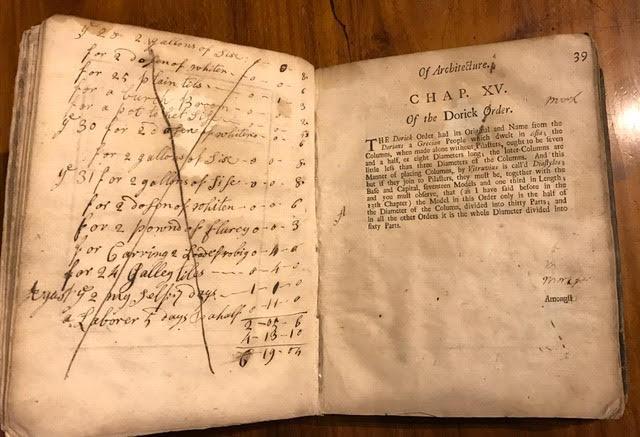 ye 28 2 gallons of Sise: 0 8
for 2 dosen of whiten 0 - 0 - 6
for 25 plain tils 0 - 1 - 3
for a burch Broom
for a pot to
ye 30 for 2 dosen of whiten 0 - 0 - 6
for 2 gallons of Sise - 0 - 0 - 8
ye 31 for 2 gallons of Sise - 0 - 0 - 8
for 2 dosen of whiten - 0 - 0 - 6
for 2 pownd of 0 - 3
for Carring 2 Lodes 0 - 4 - 0
for 24 Galley tiles 0 - 4 - 0
ye 2 my self 7 days 1 - 1 - 0
a Laborer 5 days & a half 0 - 11 - 0
2 - 05 - 6
4 - 13 - 10
6 19 - 04
39
Of Architecture.
CHAP. XV.
Of the Dorick Order.
THE Dorick Order had its Original and Name from the
Dorians a Grecian People which dwelt in Asia; the
Columns, when made alone without Pilasters, ought to be seven
and a half, or eight Diameters long, the Inter-Columns are
little less than three Diameters of the Columns. And this
Manner of placing Columns, by Vitruvius is call'd Diastylos;
but if they join to Pilasters, they must be, together with the
Base and Capital, seventeen Models and one third in Length;
and you must observe, that (as I have said before in the
13th Chapter) the Model in this Order only is the half of
the Diameter of the Column, divided into thirty Parts; and
in all the other Orders it is the whole Diameter divided into
sixty Parts.
Amongst